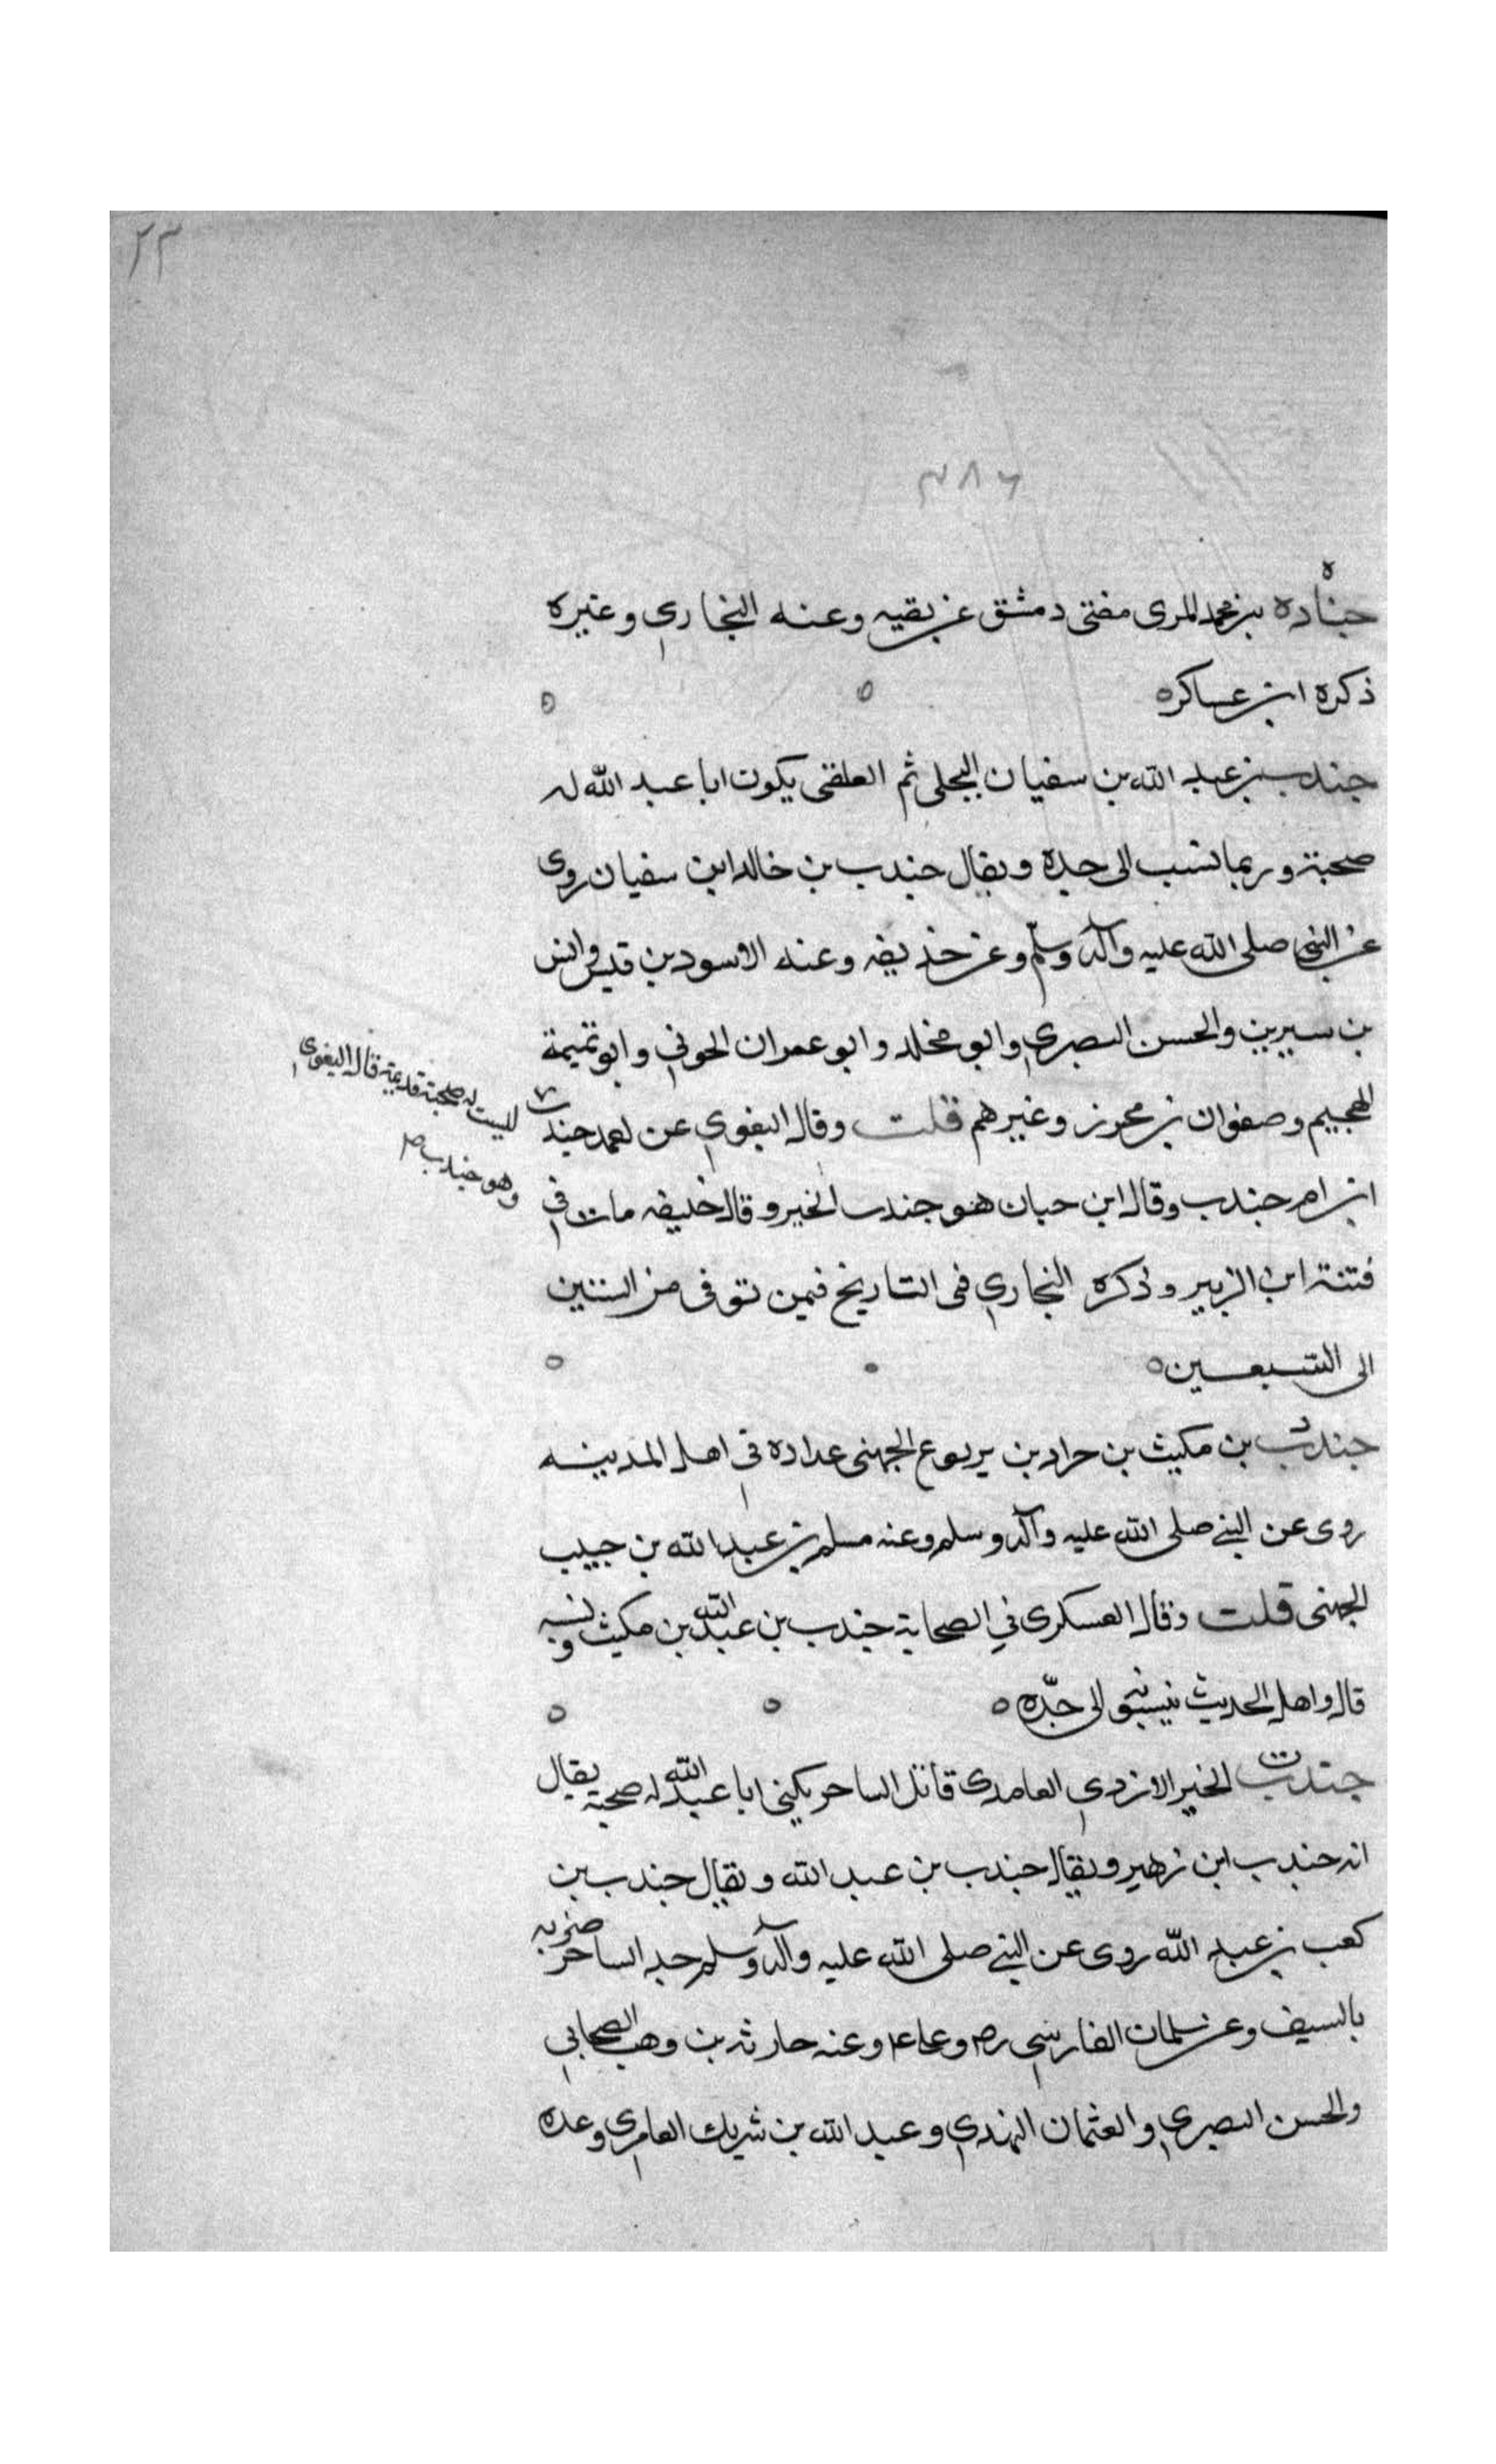 ٢٣
٧٨٦
جناده بن محمد المرى مفتى دمشق عن بقيه وعنه البخارى وغيره
ذكره ابن عساكره
جندب بن عبد الله بن سفيان البجلى ثم العلقى يكون ابا عبد الله له
صحبة وربما نسب الى جده ويقال جندب بن خالد ابن سفيان روى
عن النبى صلى الله عليه وآله وسلم وعن حذيفه وعنه الاسود بن قيس وانس
بن سيرين والحسن البصرى وابو مخلد وابو عمران الجونى وابو تميمة
الهجيم وصفوان بن محرز وغيرهم قلت وقال البغوى عن احمد جندب
ليست له صحبة قديمة قال البغوى
وهو جندب ص
ابن ام جندب وقال ابن حبان هو جندب الخير وقال خليفه مات فى
فتنة ابن الزبير وذكره البخارى فى التاريخ فيمن توفى من الستين
الى السبعين
جندب بن مكيث بن جراد بن يربوع الجهنى عداده فى اهل المدينه
روى عن النبى صلى الله عليه وآله وسلم وعنه مسلم بن عبد الله بن حبيب
الجهنى قلت وقال العسكرى فى الصحابة جندب بن عبد الله بن مكيث ونسبه
قال واهل الحديث ينسبونه الى جدّه
جندب الخير الازدى الغامدى قاتل الساحر يكنى ابا عبد الله له صحبة يقال
انه جندب ابن زهير ويقال جندب بن عبد الله ويقال جندب بن
كعب بن عبد الله روى عن النبى صلى الله عليه وآله وسلم حد الساحر ضربه
بالسيف وعن سلمان الفارسى رض وعلى ع وعنه حارثه بن وهب الصحابى
والحسن البصرى والعثمان النهدى وعبد الله بن شريك العامرى وعده